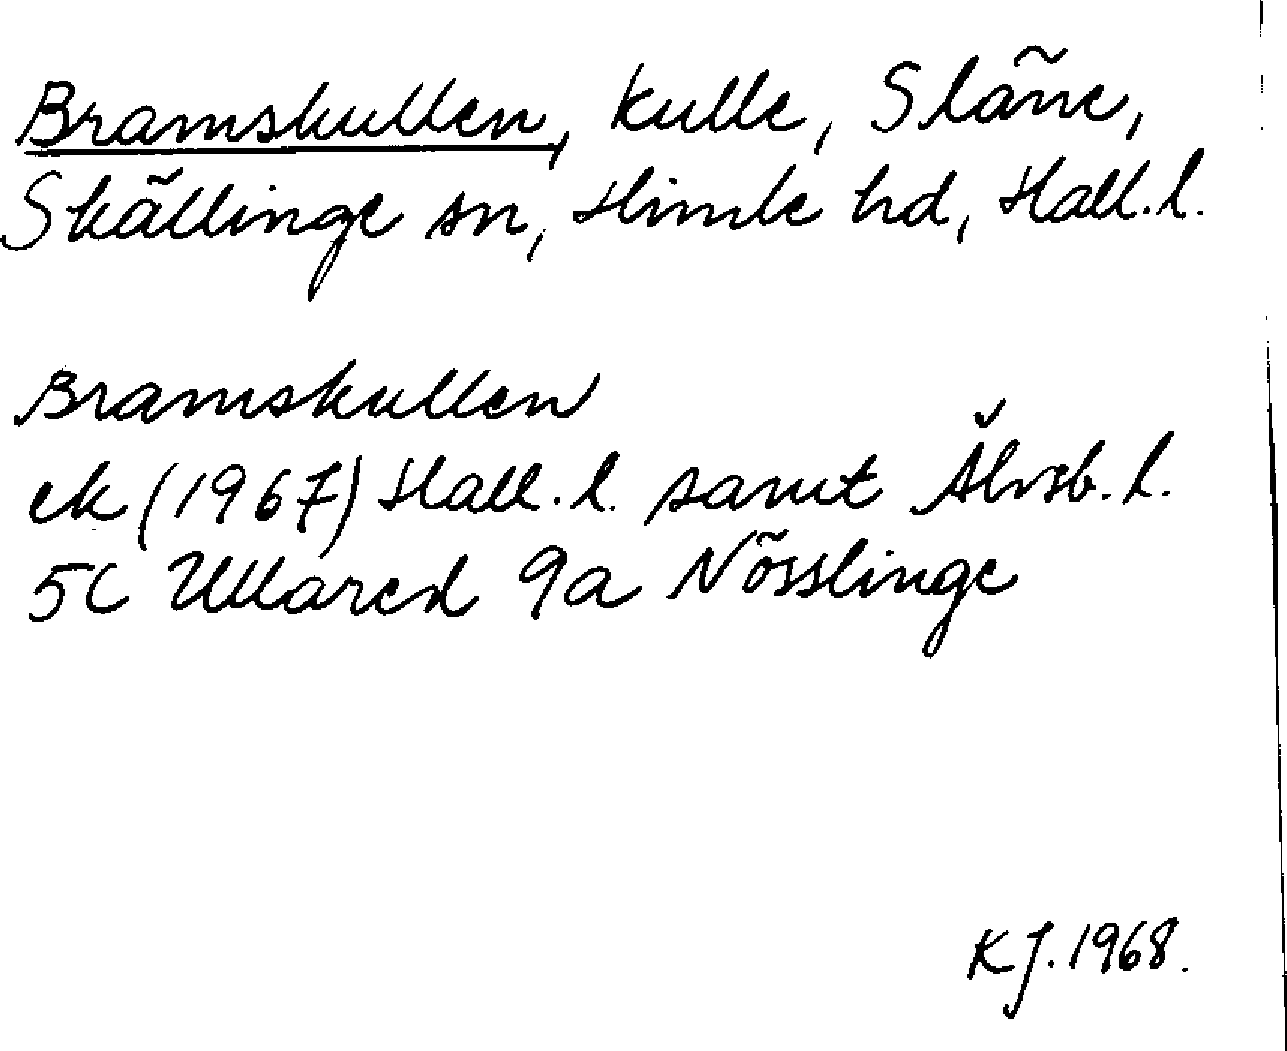 Bramskullen, kulle, Släne,
Skällinge sn, Himle hd, Hall.l.
Bramskullen
ek (1967) Hall.l. samt Älvsb.l.
5C Ullared 9a Nösslinge
KJ. 1968.